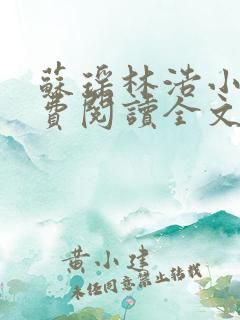 蘇瑤林浩小
費閱讀全文
黄小建
未经同意禁止转载